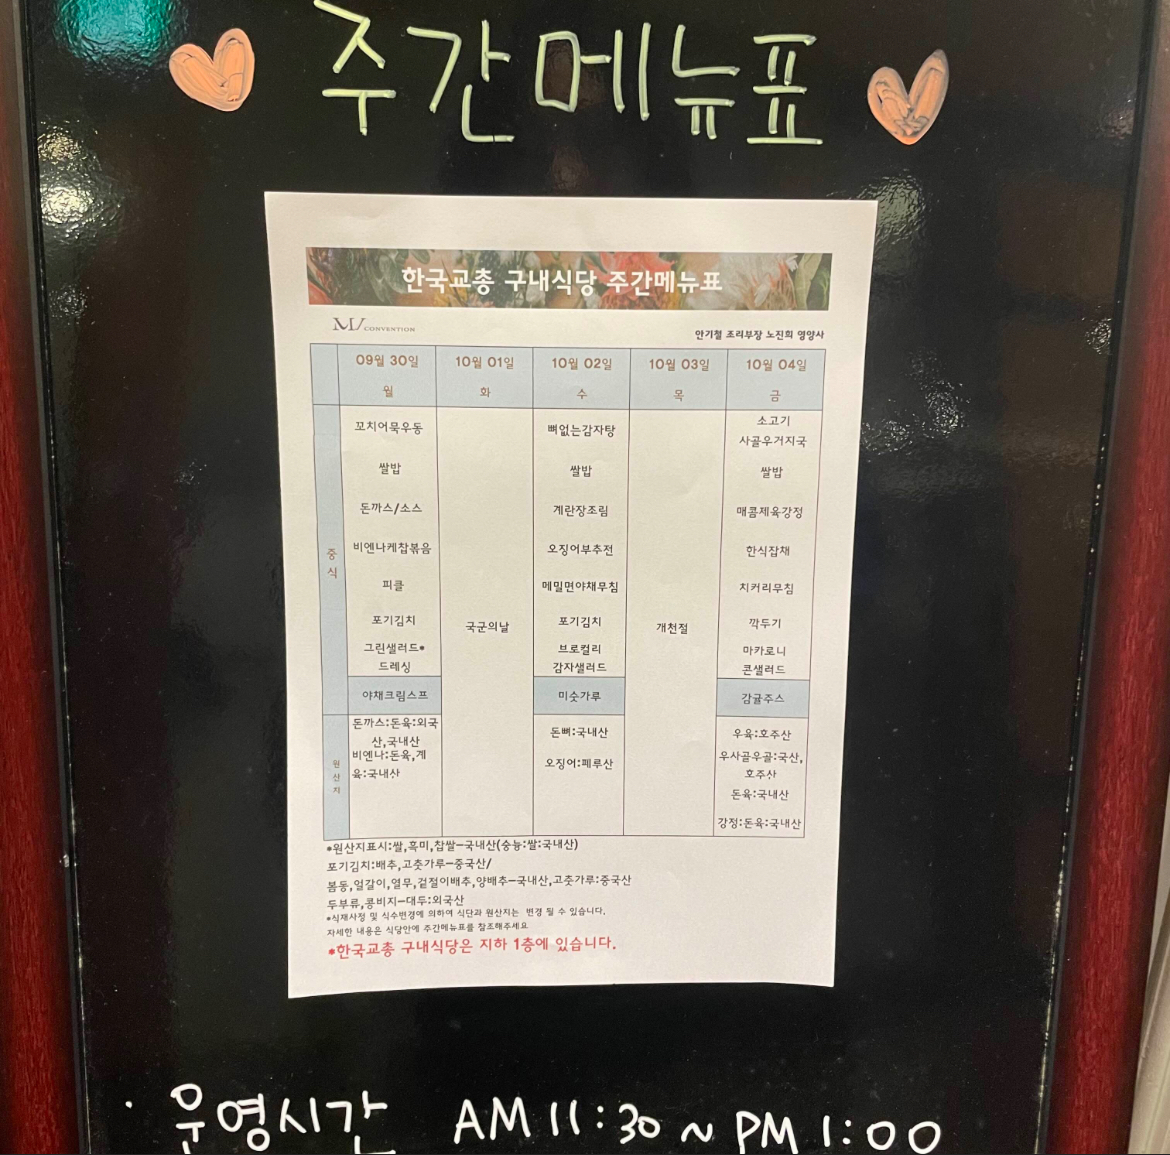 주간메뉴표
한국교총 구내식당 주간메뉴표
MV CONVENTION
안기철 조리부장 노진희 영양사
09월 30일 10월 01일 10월 02일 10월 03일 10월 04일
월 화 수 목 금
중식
꼬치어묵우동
쌀밥
돈까스/소스
비엔나케찹볶음
피클
포기김치
그린샐러드*
드레싱
야채크림스프
국군의날
뼈없는감자탕
쌀밥
계란장조림
오징어부추전
메밀면야채무침
포기김치
브로컬리
감자샐러드
미숫가루
개천절
소고기
사골우거지국
쌀밥
매콤제육강정
한식잡채
치커리무침
깍두기
마카로니
콘샐러드
감귤주스
원산지
돈까스:돈육:외국
산,국내산
비엔나:돈육,계
육:국내산
돈뼈:국내산
오징어:페루산
우육:호주산
우사골우골:국산,
호주산
돈육:국내산
강정:돈육:국내산
*원산지표시:쌀,흑미,찹쌀-국내산(숭능:쌀:국내산)
포기김치:배추,고춧가루-중국산/
봄동,얼갈이,열무,겉절이배추,양배추-국내산,고춧가루:중국산
두부류,콩비지-대두:외국산
*식재사정 및 식수변경에 의하여 식단과 원산지는 변경 될 수 있습니다.
자세한 내용은 식당안에 주간메뉴표를 참조해주세요
*한국교총 구내식당은 지하 1층에 있습니다.
· 운영시간 AM 11:30 ~ PM 1:00